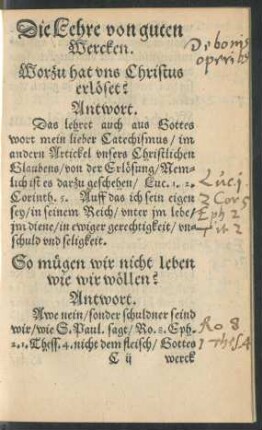 Die Lehre von guten
Wercken.
De bonis
operib
Worzu hat vns Christus
erlöset?
Antwort.
Das lehret auch aus Gottes
wort mein lieber Catechismus / im
andern Artickel vnsers Christlichen
Glaubens / von der Erlösung / Nem-
lich ist es darzu geschehen / Luc. 1. 2.
Corinth. 5. Auff das ich sein eigen
sey / in seinem Reich / vnter jm lebe /
jm diene / in ewiger gerechtigkeit / vn-
schuld vnd seligkeit.
Luc 1
2 Cor 5
Eph 2
Tit 2
So mügen wir nicht leben
wie wir wöllen?
Antwort.
Awe nein / sonder schuldner seind
wir / wie S. Paul. sagt / Ro. 8. Eph.
2. 1. Thess. 4. nicht dem fleisch / Gottes
Ro 8
1 Thes 4
C ij werck